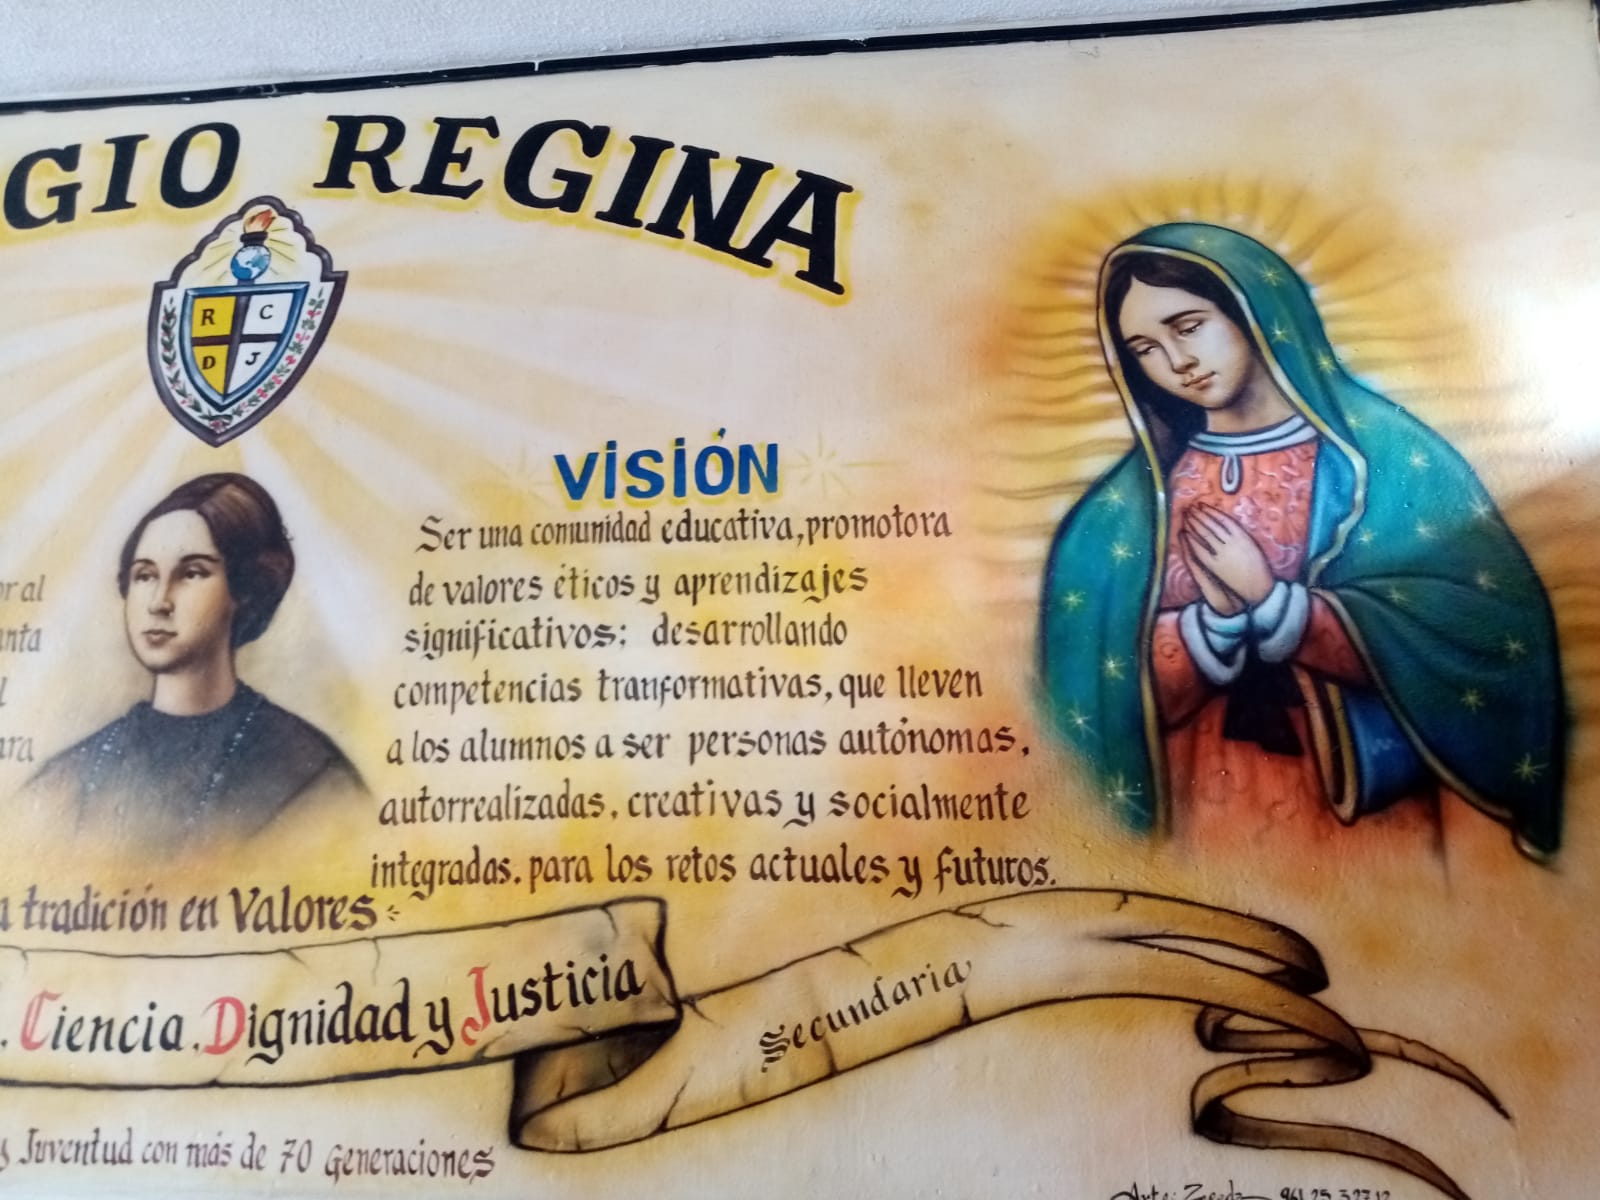 GIO REGINA
R C
D J
VISIÓN
Ser una comunidad educativa, promotora
de valores éticos y aprendizajes
significativos; desarrollando
competencias tranformativas, que lleven
a los alumnos a ser personas autónomas,
autorrealizadas, creativas y socialmente
integradas. para los retos actuales y futuros.
or al
anta
l
ara
a tradición en Valores
. Ciencia. Dignidad y Justicia
Secundaria
Juventud con más de 70 Generaciones
Arte: